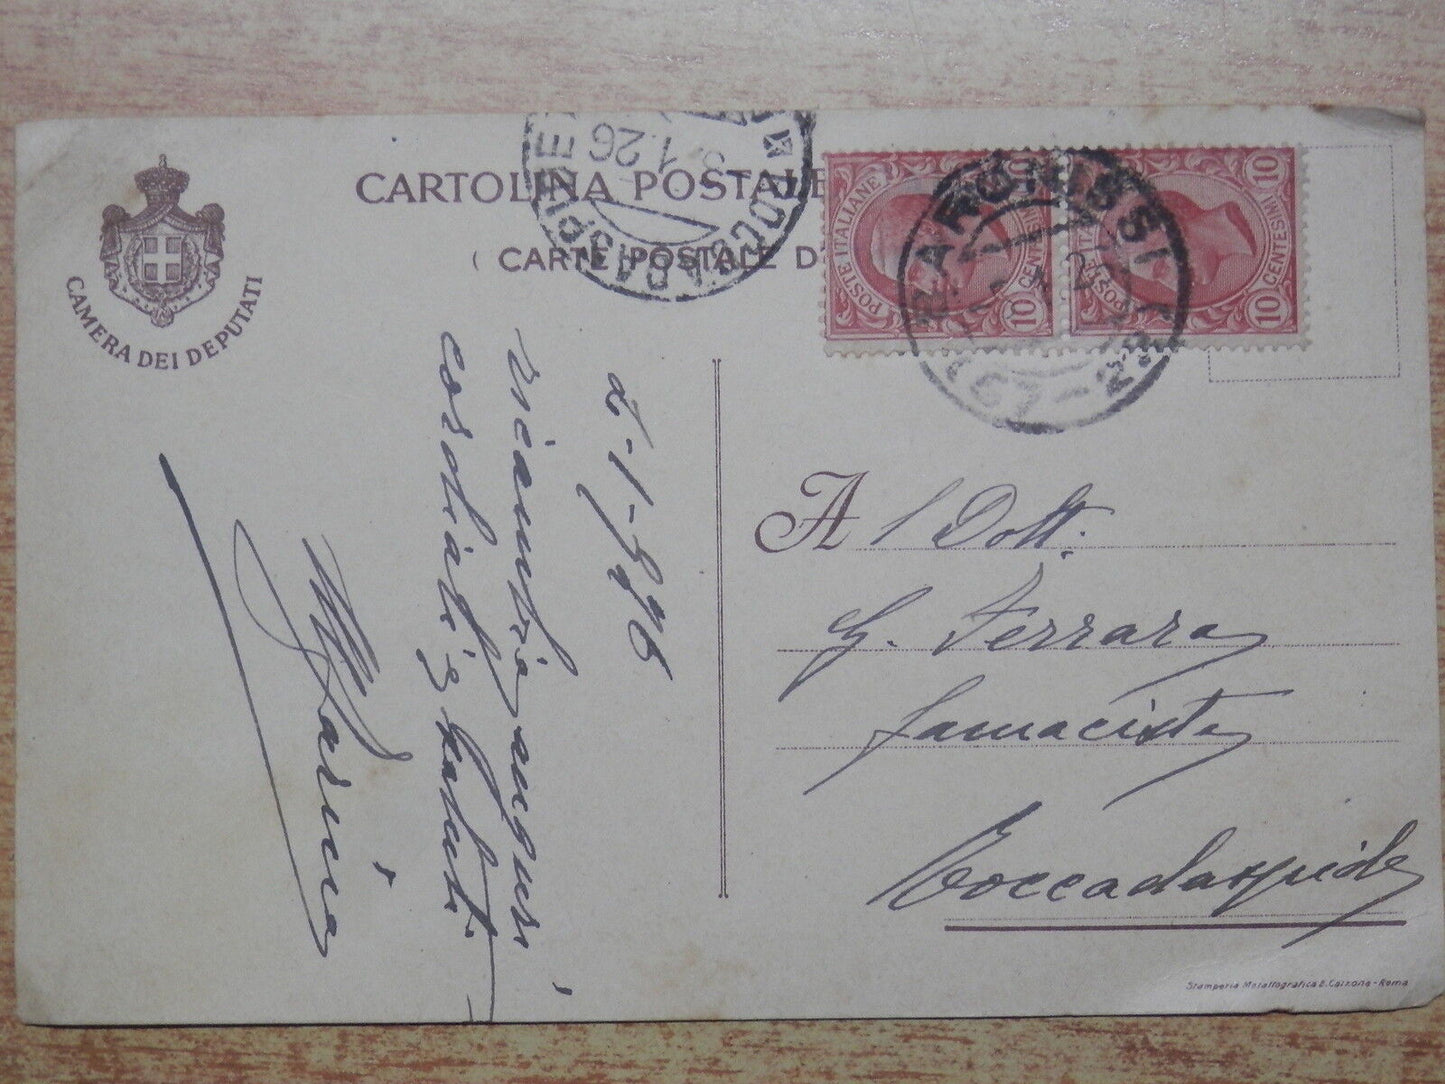 CARTOLINA POSTALE
( CARTE POSTALE D
CAMERA DEI DEPUTATI
POSTE ITALIANE
10 CENTESIMI 10
POSTE ITALIANE
10 CENTESIMI 10
ROCCADASPIDE
1.26
BARONISSI
2-1-926
ricambio auguri
cordiali e saluti
Farina
A l Dott.
G. Ferrara
farmacista
Roccadaspide
Stamperia Metallografica E. Calzone - Roma